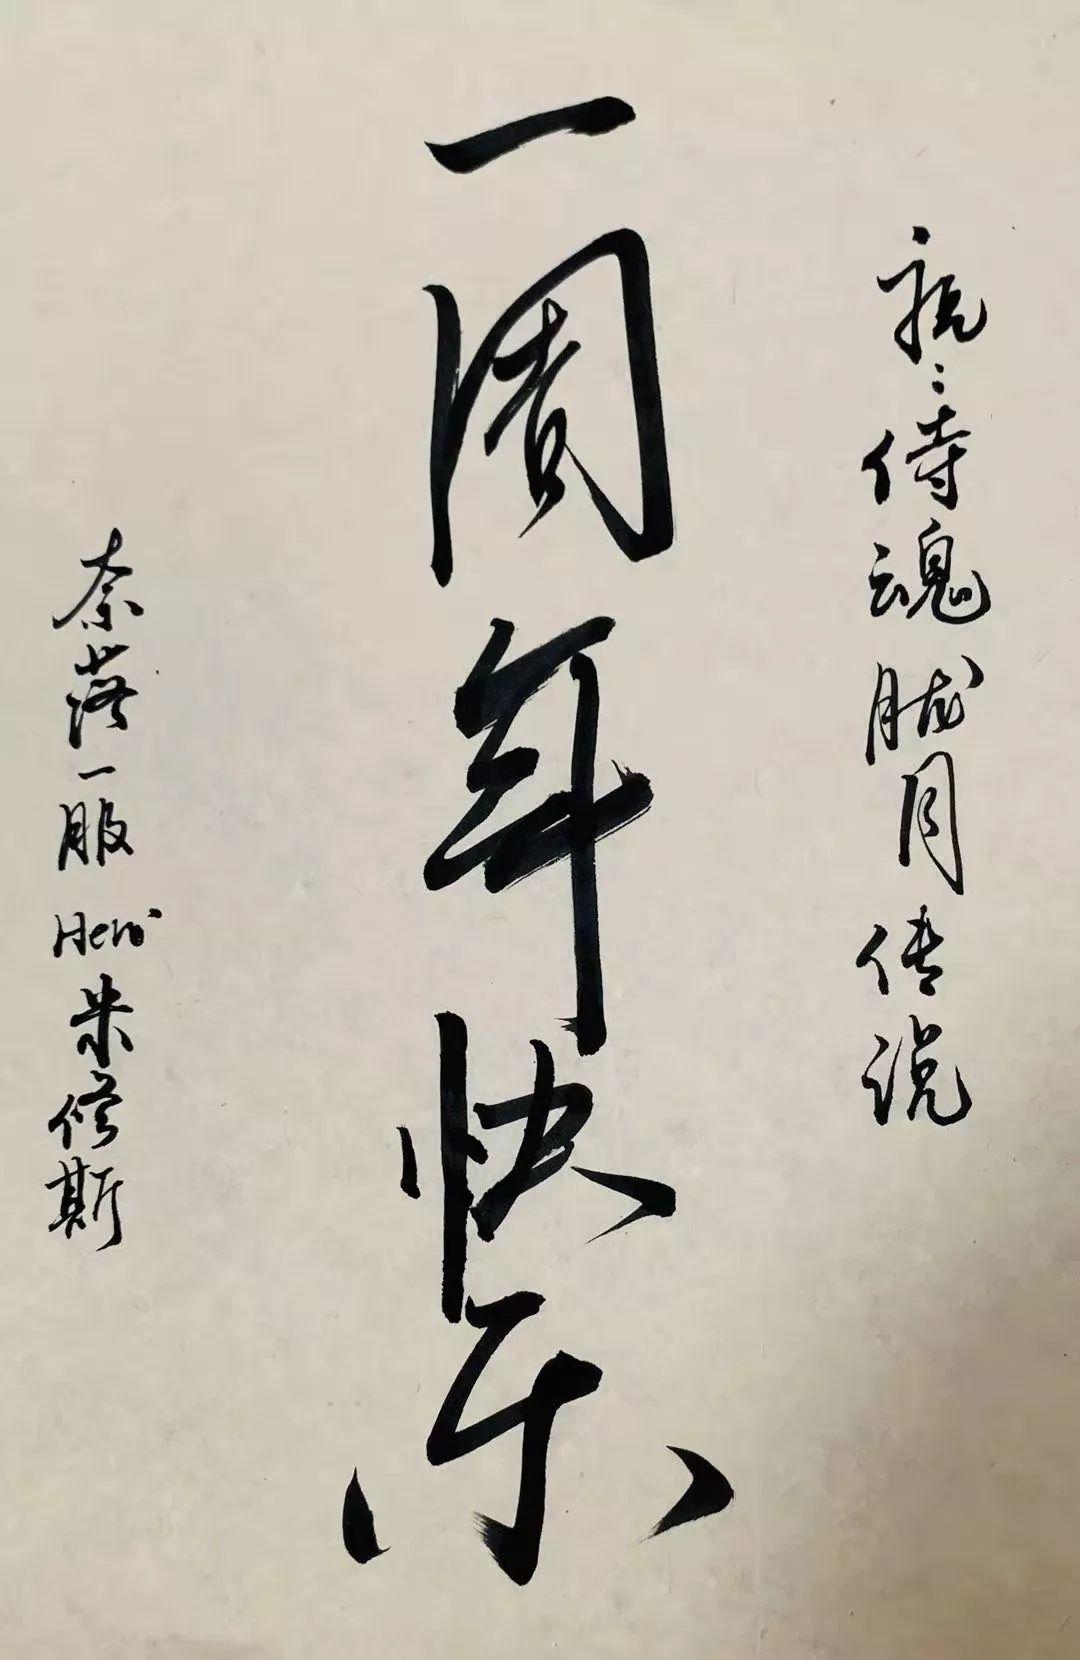 祝：侍魂胧月传说
一周年快乐
奈落一服 Hero米修斯